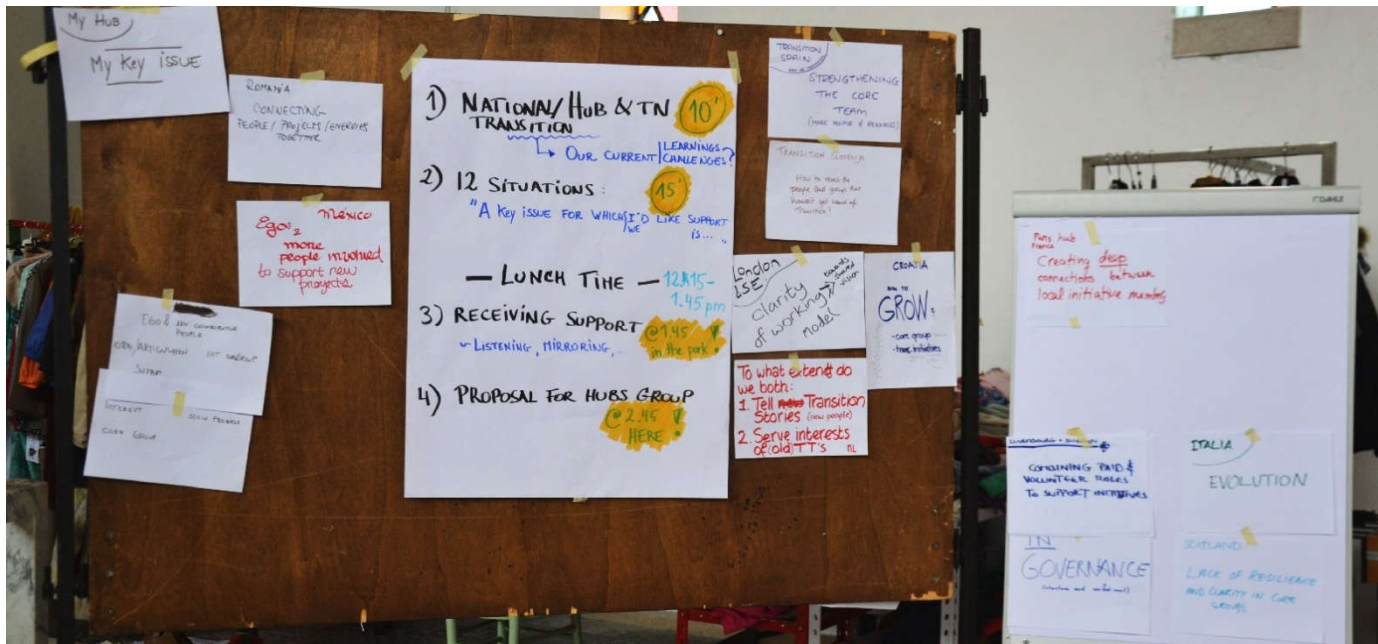 My HUB
My Key ISSUE
ROMANIA
CONNECTING
PEOPLE / PROJECTS / ENERGIES
TOGETHER
México
more
people involved
to support new
proyects
PEOPLE
CORE GROUP
1) NATIONAL/HUB & TN 10'
TRANSITION
OUR CURRENT LEARNINGS
CHALLENGES?
2) 12 SITUATIONS: 15'
"A KEY ISSUE FOR WHICH I'D LIKE SUPPORT
WE IS.... "
— LUNCH TIME — 12.15-
1.45 pm
3) RECEIVING SUPPORT @1.45 !
in the park
~ LISTENING, MIRRORING, ...
4) PROPOSAL FOR HUBS GROUP
@ 2.45 !
HERE
TRANSITION
SPAIN
STRENGTHENING
THE CORE
TEAM
TRANSITION
How to reach the
people and groups that
haven't yet heard of
Transition?
London
LSE
Clarity
of working
model
towards
shared
vision
CROATIA
HOW TO
GROW:
- core group
- trans. initiatives
To what extend do
we both:
1. Tell Transition
Stories (new people)
2. Serve interests
of (old) TT's NL
Paris hub
France
Creating deep
connections between
local initiative members
COMBINING PAID &
VOLUNTEER ROLES
TO SUPPORT INITIATIVES
ITALIA
EVOLUTION
IN
GOVERNANCE
SCOTLAND
LACK OF RESILIENCE
AND CLARITY IN CORE
GROUPS